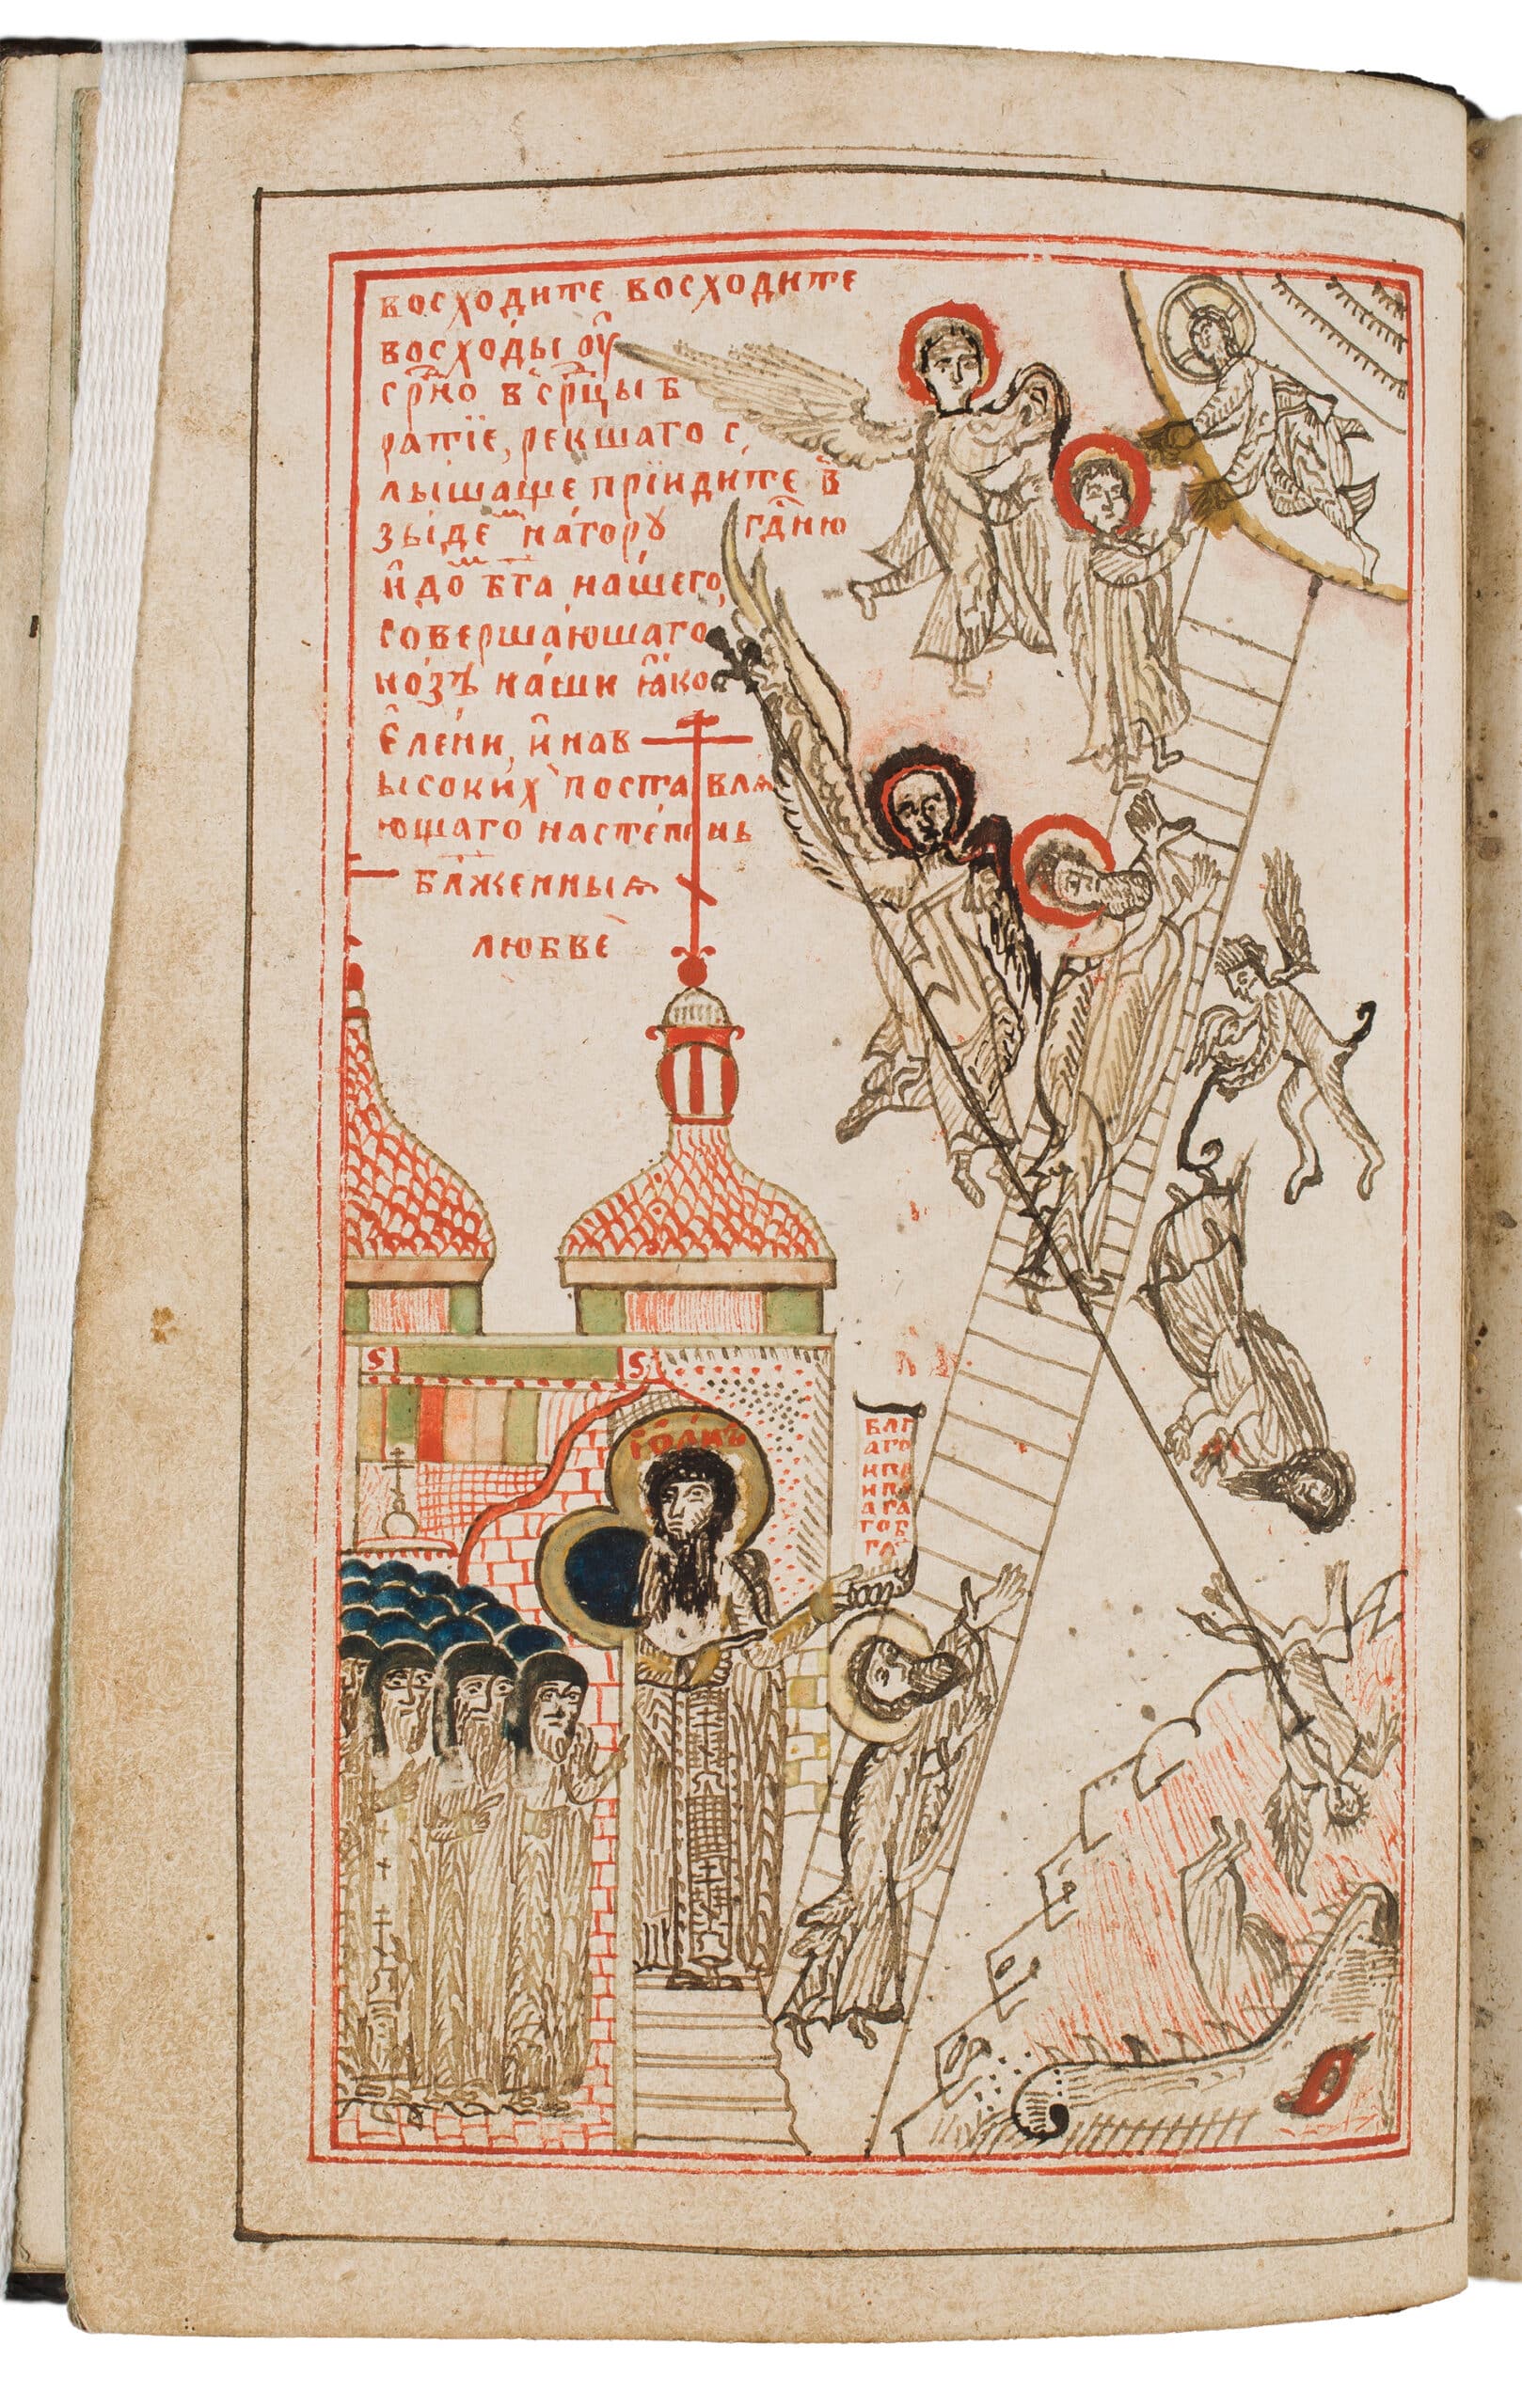 восходите восходите
восходы оу҆
срⷣно в срⷣцы б
ратїе, рекшаго с
лышаще прїидите в
зыдеⷨ на гору гдⷭ҇ню
и҆ домⷭ҇ бга нашего,
совершающаго
нозѣ наши ꙗ҆ко
е҆лени, и҆ нав
ысоких поставлѧ
ющаго на степень
блженныѧ
любве
ѕ ѕ
бл
аго
и
и
ага
гоб